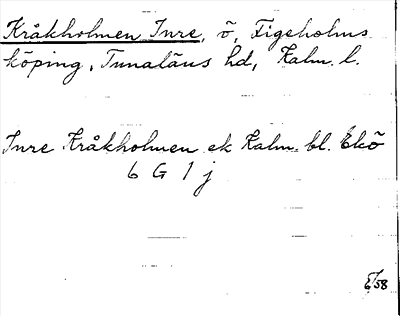 Kråkholmen Inre, ö, Figeholms
köping, Tunaläns hd, Kalm. l.
Inre Kråkholmen ek Kalm. bl. Ekö
6 G 1 j
58